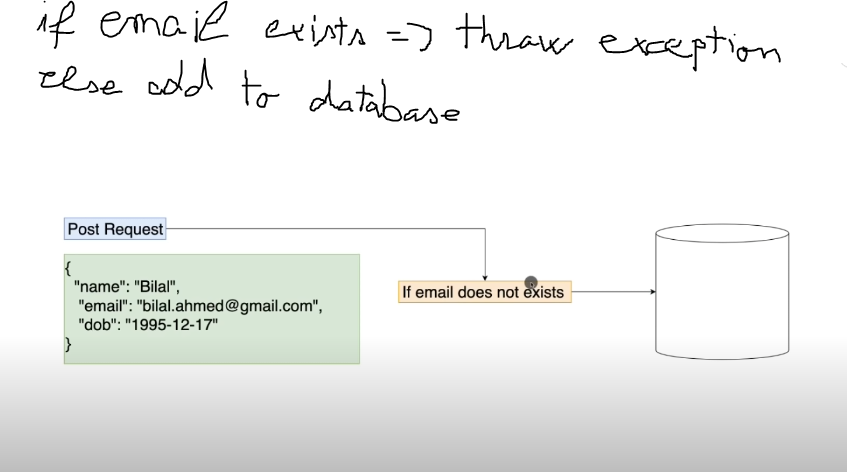 if email exists => throw exception
else add to database
Post Request
{
"name": "Bilal",
"email": "bilal.ahmed@gmail.com",
"dob": "1995-12-17"
}
If email does not exists